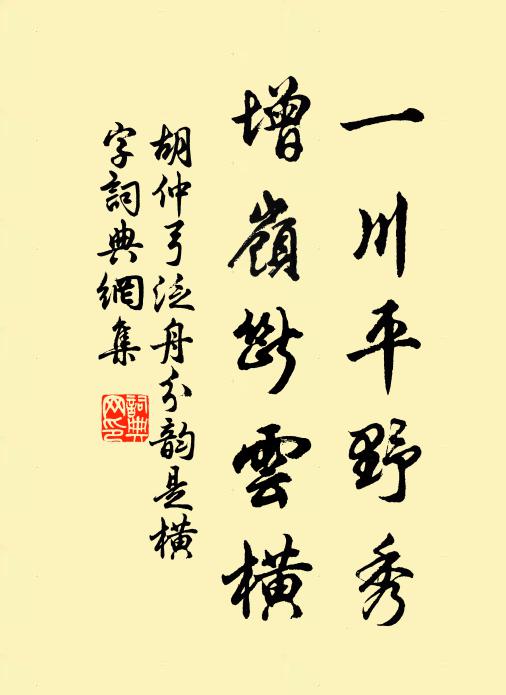 一川平野秀
增嶺斷雲橫
胡仲弓泛舟分韵是橫
字詞典網集
詞典網印